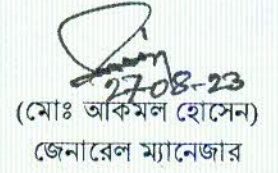 27-08-23
(মোঃ আকমল হোসেন)
জেনারেল ম্যানেজার